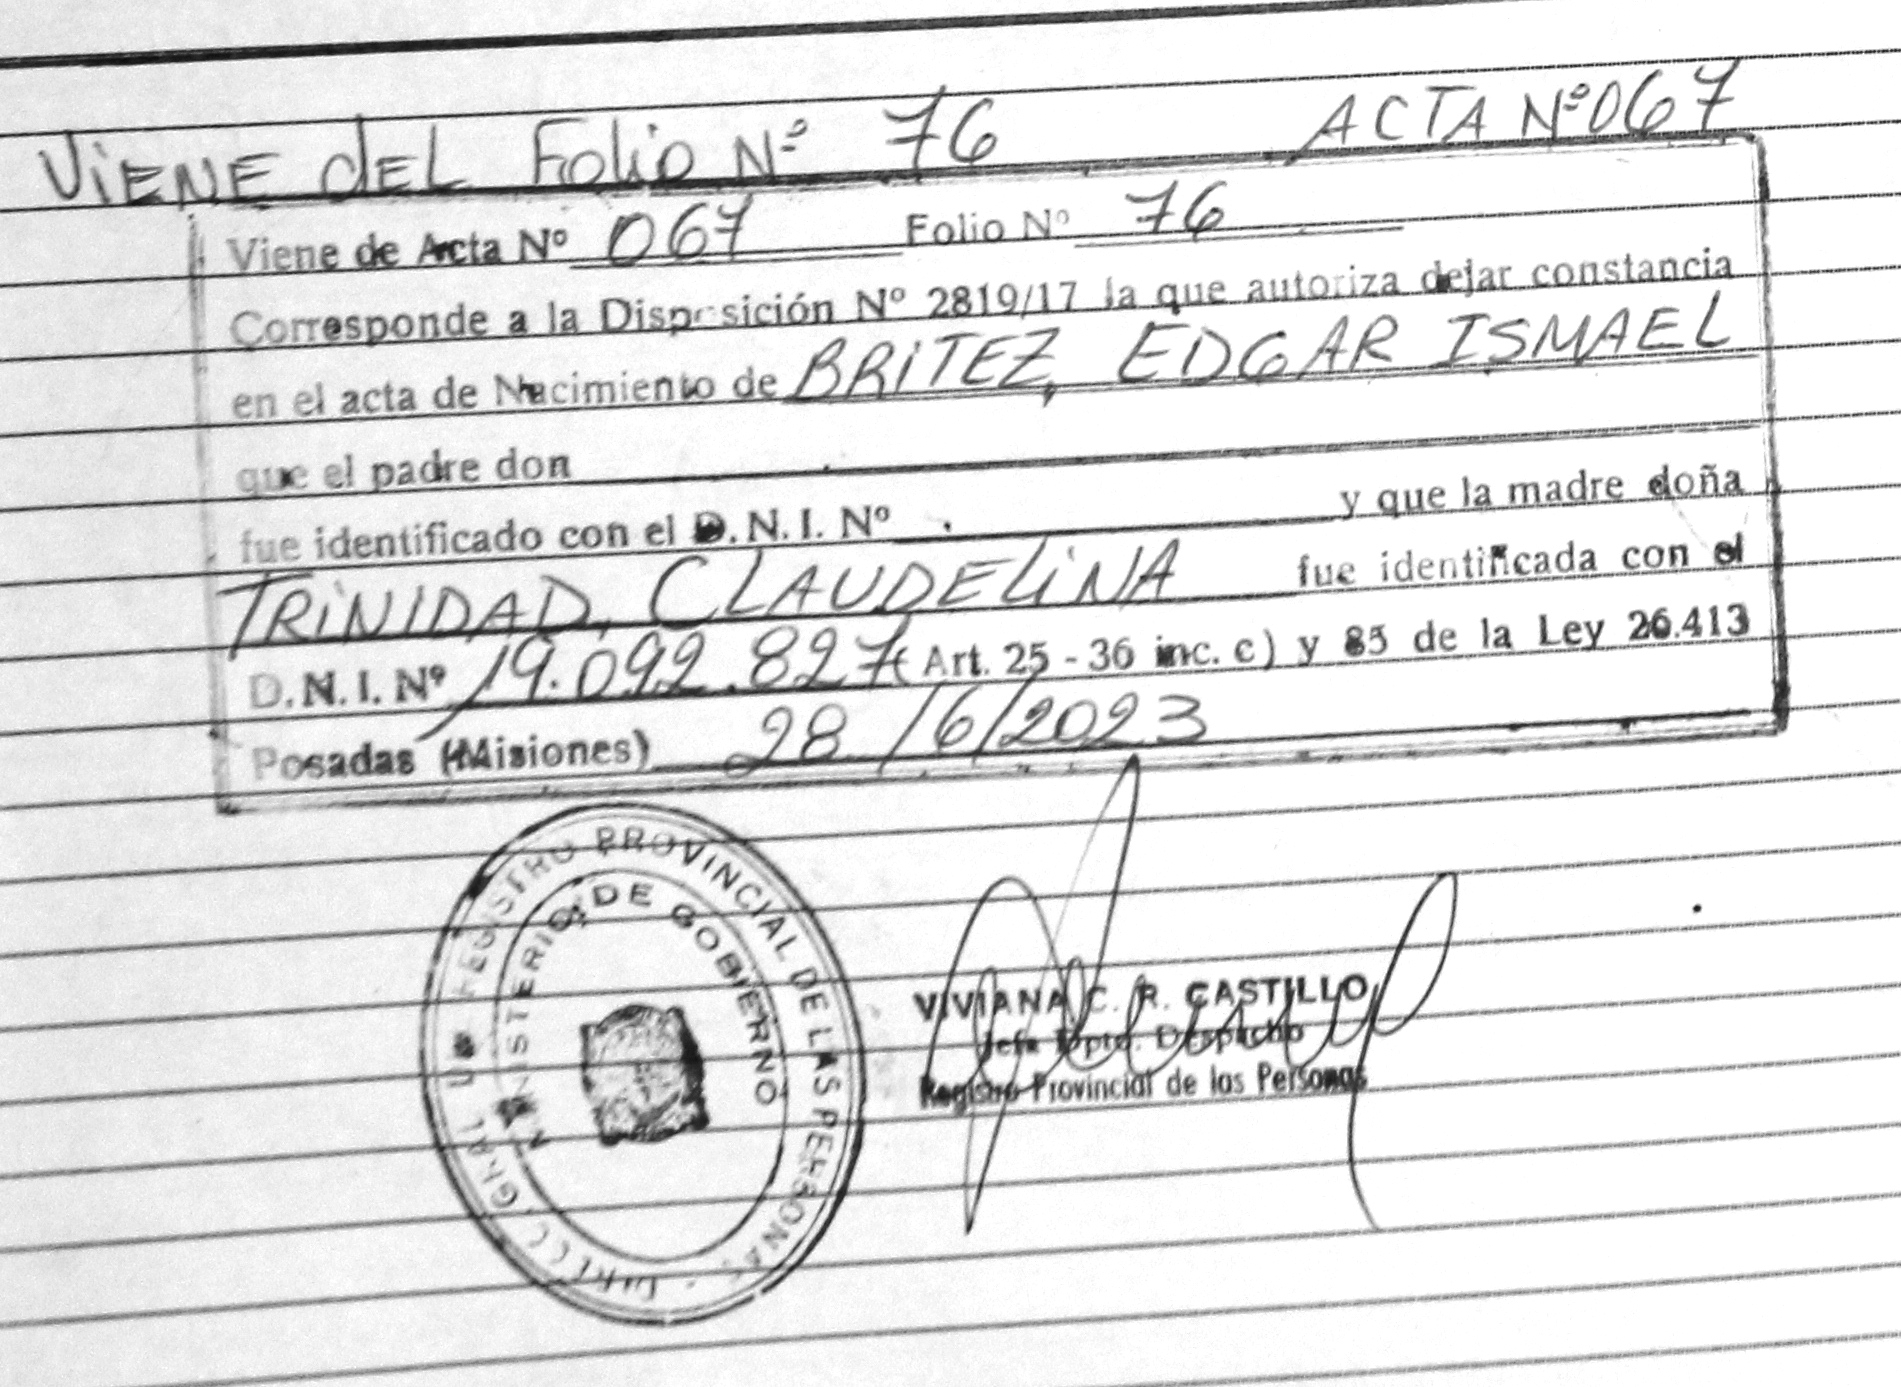 VIENE DEL Folio Nº 76 ACTA Nº 067
Viene de Acta Nº 067 Folio Nº 76
Corresponde a la Disposición Nº 2819/17 la que autoriza dejar constancia
en el acta de Nacimiento de BRITEZ, EDGAR ISMAEL
que el padre don
fue identificado con el D.N.I. Nº y que la madre doña
TRINIDAD, CLAUDELINA fue identificada con el
D.N.I. Nº 19.092.827 ( Art. 25 - 36 inc. c) y 85 de la Ley 26.413
Posadas (Misiones) 28/6/2023
REGISTRO PROVINCIAL DE LAS PERSONAS
MINISTERIO DE GOBIERNO
VIVIANA C. R. CASTILLO
Jefa Dpto. Despacho
Registro Provincial de las Personas